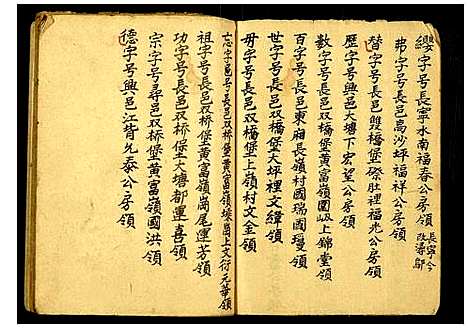 纓字号長寧水南福春公房領長寧今改潯鄔
弗字号長邑嵩沙坪福祥公房領
替字号長邑雙橋堡磜肚裡福光公房領
歷字号興邑大塘下宏望公房領
數字号長邑双橋堡黃富嶺圍岌上錦堂領
百字号長邑東廂長嶺村國瑞國璦領
世字号長邑双橋堡大坪裡文緯領
毋字号長邑双橋堡上嶺村文金領
忘字号長邑双桥堡黃富嶺塅崗上文衍元華領
祖字号長邑双桥堡黃富嶺崗尾運芳領
功字号長邑双桥堡大塘都運喜領
宗字号尋邑双桥堡黃富嶺國洪領
德字号興邑江背允泰公房領